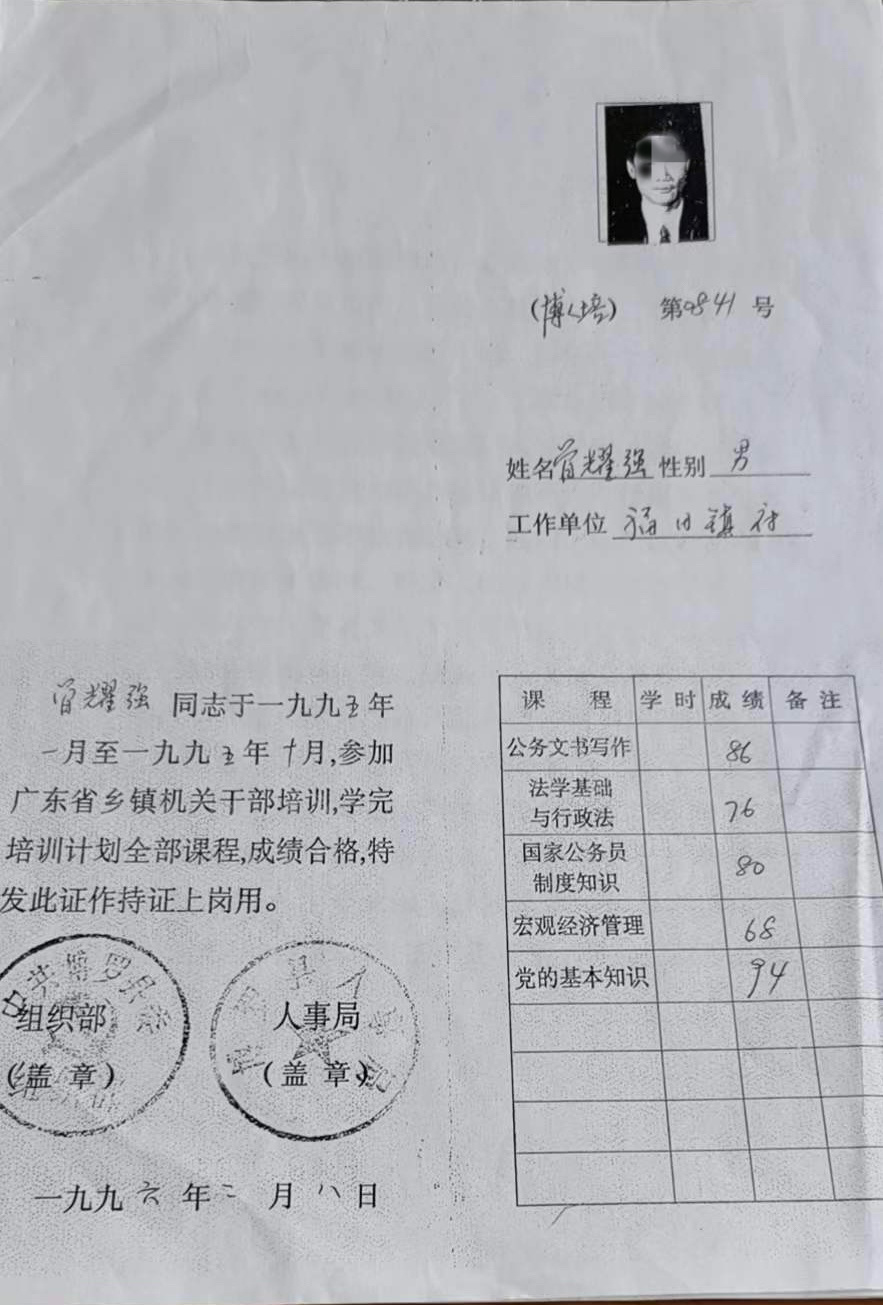 (博人培) 第9841号
姓名曾耀强性别男
工作单位福田镇府
曾耀强同志于一九九五年
一月至一九九五年十月,参加
广东省乡镇机关干部培训,学完
培训计划全部课程,成绩合格,特
发此证作持证上岗用。
中共博罗县委
组织部
(盖章)
人事局
(盖章)
一九九六年二月八日
课程 学时 成绩 备注
公务文书写作 86
法学基础
与行政法 76
国家公务员
制度知识 80
宏观经济管理 68
党的基本知识 94